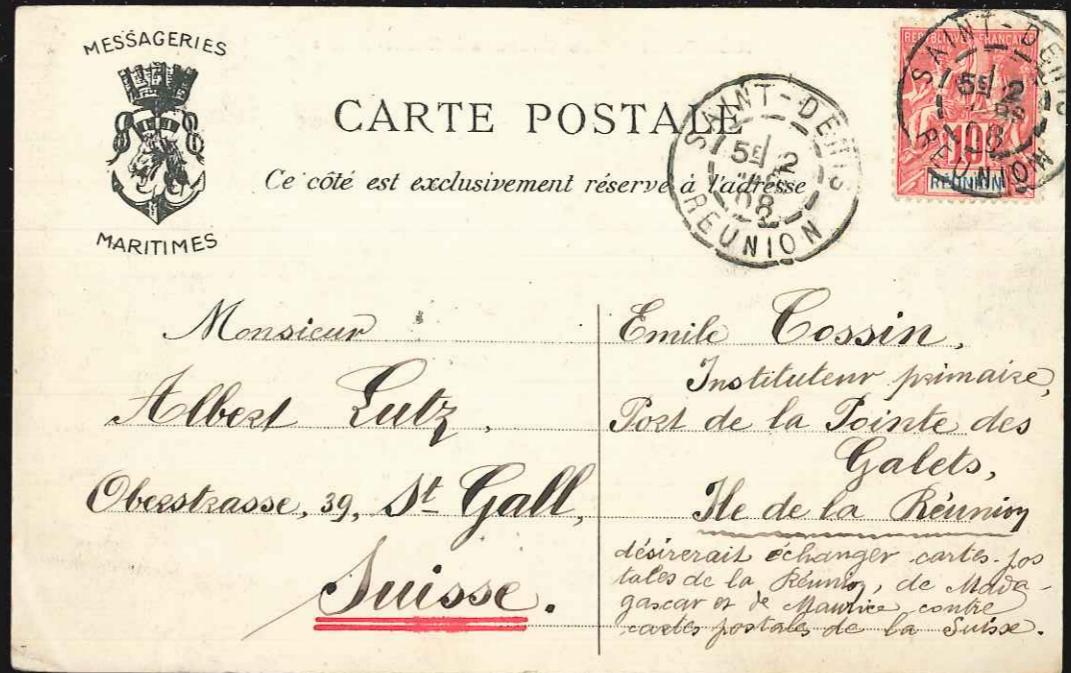 MESSAGERIES
MARITIMES
CARTE POSTALE
Ce côté est exclusivement réservé à l'adresse
SAINT-DENIS
5E 2
08
RÉUNION
RÉPUBLIQUE FRANÇAISE
SAINT-DENIS
5E 2
08
RÉUNION
10
RÉUNION
Monsieur
Albert Lutz,
Oberstrasse, 39, St Gall,
Suisse.
Emile Cossin,
Instituteur primaire,
Port de la Pointe des
Galets,
Ile de la Réunion
désirerait échanger cartes-pos
tales de la Réunion, de Mada-
gascar et de Maurice contre
cartes postales de la Suisse.